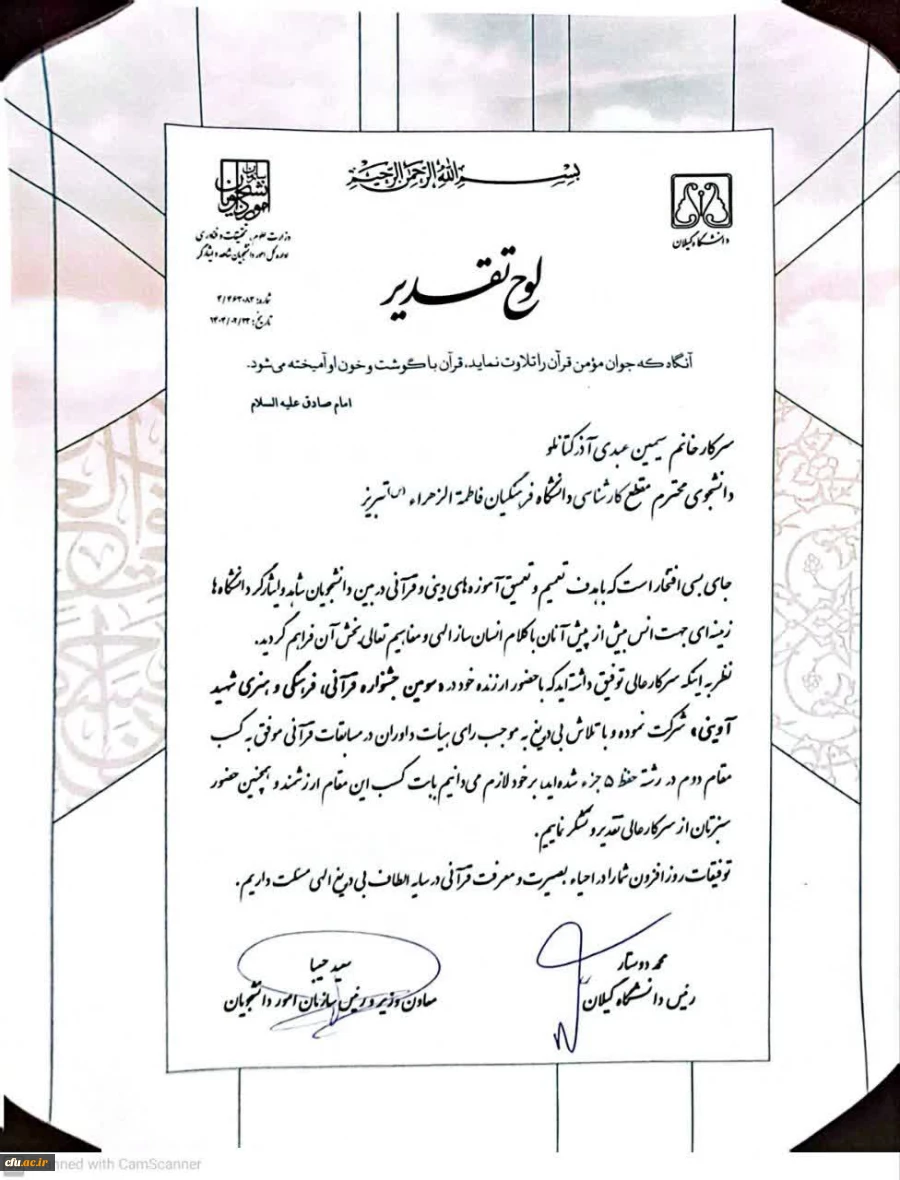 بسم الله الرحمن الرحیم
سازمان امور دانشجویان
وزارت علوم، تحقیقات و فناوری
اداره کل امور دانشجویان شاهد و ایثارگر
دانشگاه گیلان
لوح تقدیر
شماره: ۲/۴۶۳۰۸۳
آنگاه که جوان مؤمن قرآن را تلاوت نماید، قرآن با گوشت و خون او آمیخته می‌شود.
امام صادق علیه السلام
سرکار خانم سیمین عبدی آذر کتانلو
دانشجوی محترم مقطع کارشناسی دانشگاه فرهنگیان فاطمة الزهراء (س) تبریز
جای بسی افتخار است که با هدف تعمیم و تعمیق آموزه های دینی و قرآنی در بین دانشجویان شاهد و ایثارگر دانشگاه ها
زمینه ای جهت انس بیش از پیش آنان با کلام انسان ساز الهی و مفاهیم تعالی بخش آن فراهم گردید.
نظر به اینکه سرکارعالی توفیق داشته اید که با حضور ارزنده خود در «سومین جشنواره قرآنی، فرهنگی و هنری شهید
آوینی» شرکت نموده و با تلاش بی دریغ به موجب رای هیأت داوران در مسابقات قرآنی موفق به کسب
مقام دوم در رشته حفظ ۵ جزء شده اید، بر خود لازم می دانیم بابت کسب این مقام ارزشمند و همچنین حضور
سبزتان از سرکارعالی تقدیر و تشکر نماییم.
توفیقات روز افزون شما را در احیاء بصیرت و معرفت قرآنی در سایه الطاف بی دریغ الهی مسئلت داریم.
محمد دوستار
رئیس دانشگاه گیلان
سعید حبیبا
معاون وزیر و رئیس سازمان امور دانشجویان
cfu.ac.ir
nned with CamScanner